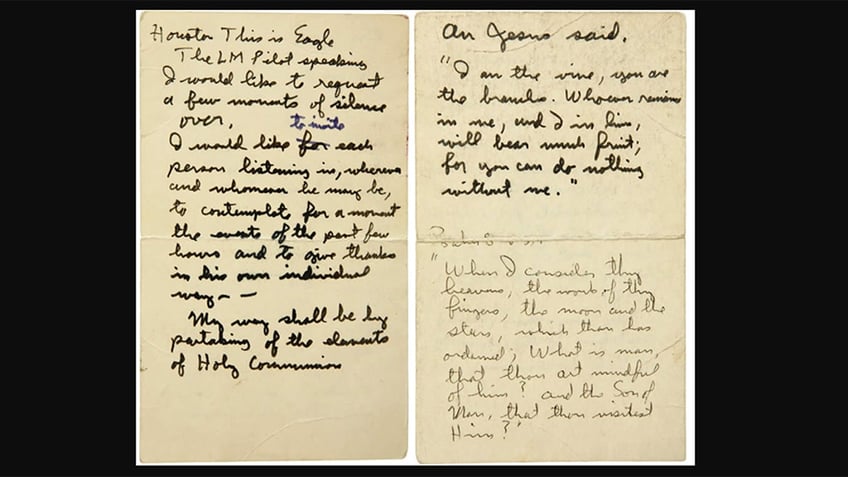 Houston This is Eagle
The LM Pilot speaking
I would like to request
a few moments of silence
over.
to invite
I would like for each
person listening in, wherever
and whomever he may be,
to contemplate for a moment
the events of the past few
hours and to give thanks
in his own individual
way - -
My way shall be by
partaking of the elements
of Holy Communion
As Jesus said,
"I am the vine, you are
the branches. Whoever remains
in me, and I in him,
will bear much fruit;
for you can do nothing
without me."
"When I consider thy
heavens, the work of thy
fingers, the moon and the
stars, which thou has
ordained; What is man,
that thou art mindful
of him? and the Son of
Man, that thou visitest
Him?"